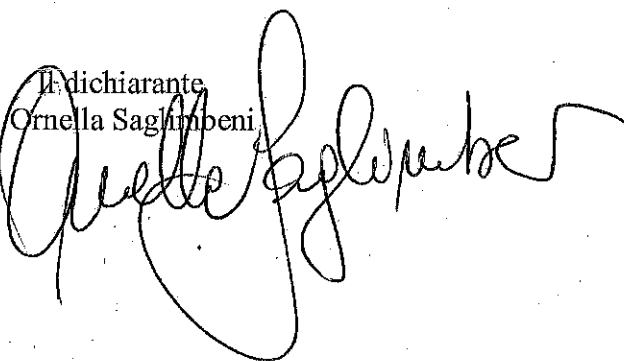 Il dichiarante
Ornella Saglimbeni
Ornella Saglimbeni